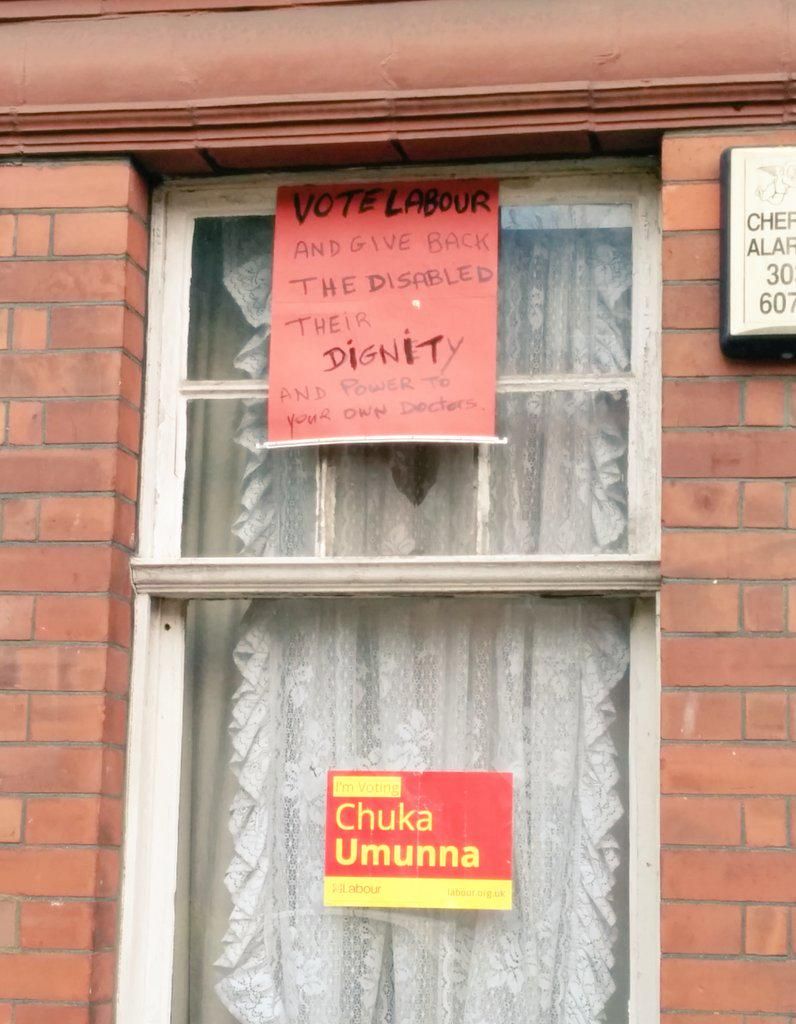 VOTE LABOUR
AND GIVE BACK
THE DISABLED
THEIR
DIGNITY
AND POWER TO
YOUR OWN DOCTORS.
CHE
ALAR
30
607
I'm Voting
Chuka
Umunna
Labour
labour.org.uk